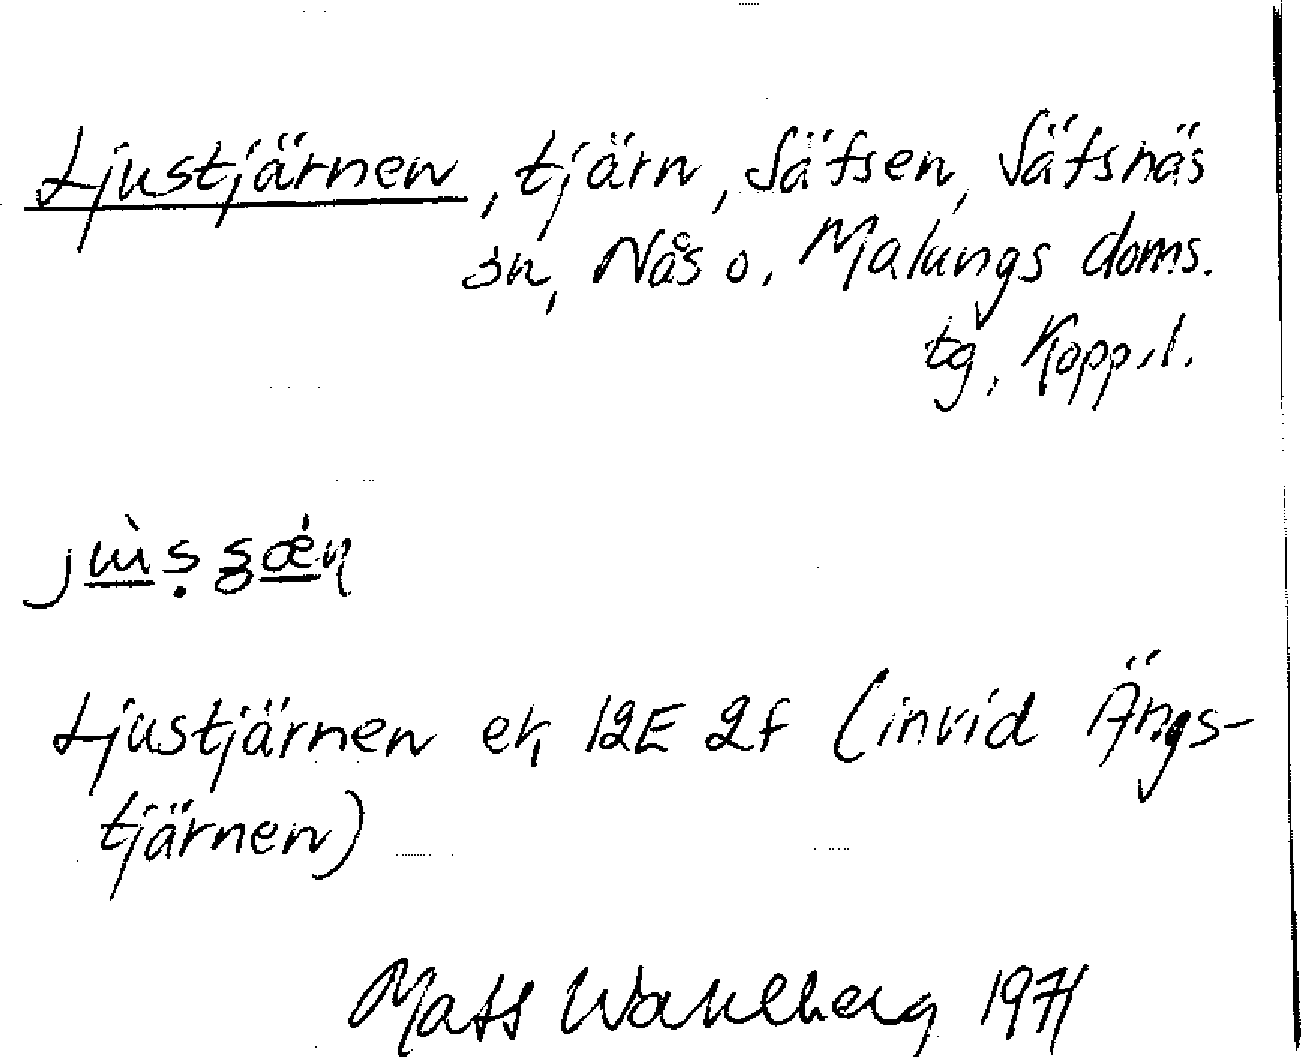 Ljustjärnen, tjärn, Säfsen, Säfsnäs
sn, Nås o. Malungs doms.
tg, Kopp.l.
Ljustjärnen ek 12E 2f (invid Ängs-
tjärnen)
Mats Wahlberg 1971